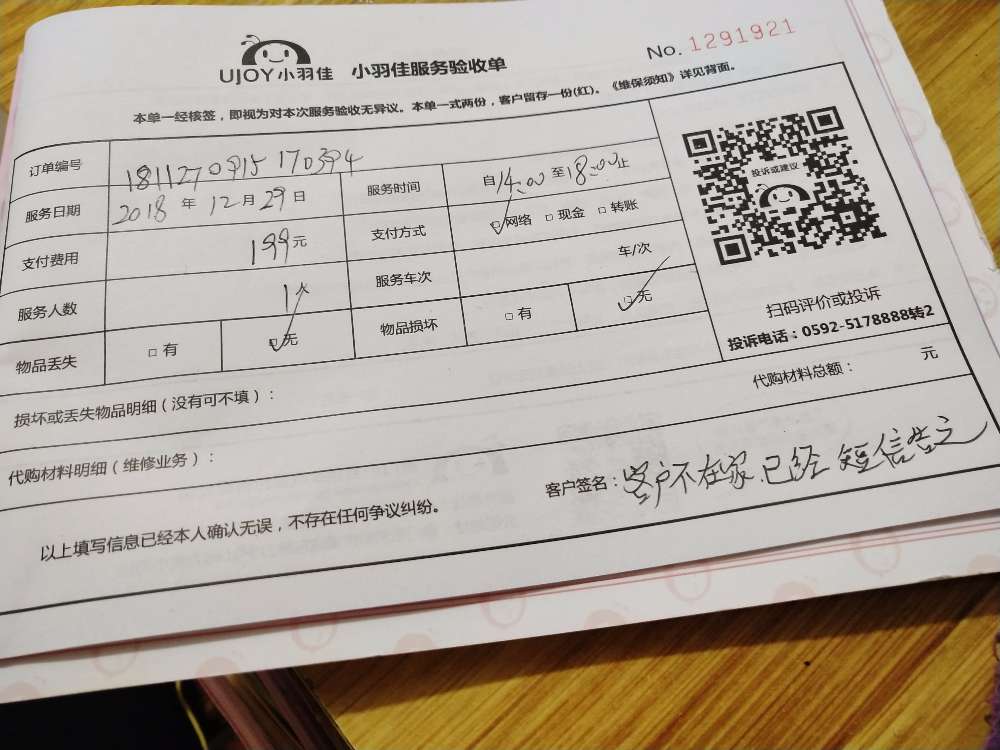 UJOY小羽佳 小羽佳服务验收单 No. 1291921
本单一经核签，即视为对本次服务验收无异议。本单一式两份，客户留存一份(红)。《维保须知》详见背面。
订单编号
服务日期 2018 年 12 月 29 日 服务时间 自14:00 至18:00止
支付费用 199元 支付方式 □网络 □现金 □转账
服务人数 1人 服务车次 车/次
物品丢失 □有 □无 物品损坏 □有 □无
投诉或建议
扫码评价或投诉
投诉电话：0592-5178888转2
损坏或丢失物品明细（没有可不填）：
代购材料明细（维修业务）： 代购材料总额： 元
以上填写信息已经本人确认无误，不存在任何争议纠纷。 客户签名：客户不在家.已经短信告之